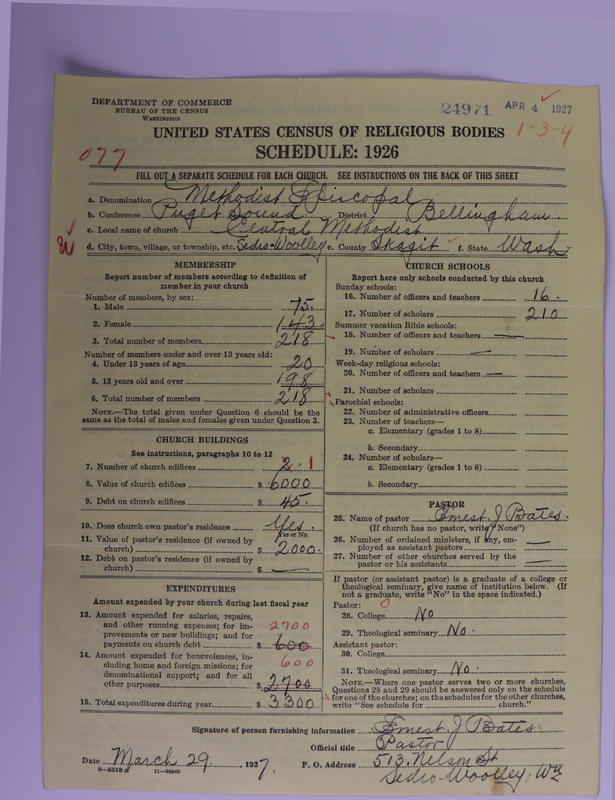 DEPARTMENT OF COMMERCE
BUREAU OF THE CENSUS
WASHINGTON
24971 APR 4 1927
1-3-4
UNITED STATES CENSUS OF RELIGIOUS BODIES
SCHEDULE: 1926
077
FILL OUT A SEPARATE SCHEDULE FOR EACH CHURCH. SEE INSTRUCTIONS ON THE BACK OF THIS SHEET
a. Denomination Methodist Episcopal
b. Conference Puget Sound District Bellingham
c. Local name of church Central Methodist
d. City, town, village, or township, etc. Sedro-Woolley e. County Skagit f. State Wash.
MEMBERSHIP
Report number of members according to definition of
member in your church
Number of members, by sex:
1. Male 75.
2. Female 143.
3. Total number of members. 218
Number of members under and over 13 years old:
4. Under 13 years of age 20
5. 13 years old and over 198
6. Total number of members 218
NOTE.—The total given under Question 6 should be the
same as the total of males and females given under Question 3.
CHURCH BUILDINGS
See instructions, paragraphs 10 to 12
7. Number of church edifices 2. 1
8. Value of church edifices $ 6000
9. Debt on church edifices $ 45.
10. Does church own pastor's residence Yes.
Yes or No
11. Value of pastor's residence (if owned by
church) $ 2000.
12. Debt on pastor's residence (if owned by
church) $ —
EXPENDITURES
Amount expended by your church during last fiscal year
13. Amount expended for salaries, repairs,
and other running expenses; for im-
provements or new buildings; and for
payments on church debt $ 600
2700
14. Amount expended for benevolences, in-
cluding home and foreign missions; for
denominational support; and for all
other purposes $ 2700
600
15. Total expenditures during year $ 3300
CHURCH SCHOOLS
Report here only schools conducted by this church
Sunday schools:
16. Number of officers and teachers 16.
17. Number of scholars 210
Summer vacation Bible schools:
18. Number of officers and teachers —
19. Number of scholars —
Week-day religious schools:
20. Number of officers and teachers —
21. Number of scholars
Parochial schools:
22. Number of administrative officers
23. Number of teachers—
a. Elementary (grades 1 to 8)
b. Secondary
24. Number of scholars—
a. Elementary (grades 1 to 8)
b. Secondary
PASTOR
25. Name of pastor Ernest J Bates.
(If church has no pastor, write "None")
26. Number of ordained ministers, if any, em-
ployed as assistant pastors —
27. Number of other churches served by the
pastor or his assistants —
If pastor (or assistant pastor) is a graduate of a college or
theological seminary, give name of institution below. (If
not a graduate, write "No" in the space indicated.)
Pastor: 0
28. College No
29. Theological seminary No.
Assistant pastor:
30. College
31. Theological seminary No.
NOTE.—Where one pastor serves two or more churches,
Questions 28 and 29 should be answered only on the schedule
for one of the churches; on the schedules for the other churches,
write "See schedule for church."
Signature of person furnishing information Ernest J Bates
Official title Pastor
Date March 29, 1927. P. O. Address 513 Nelson St
Sedro-Woolley, Wn
8-5518a